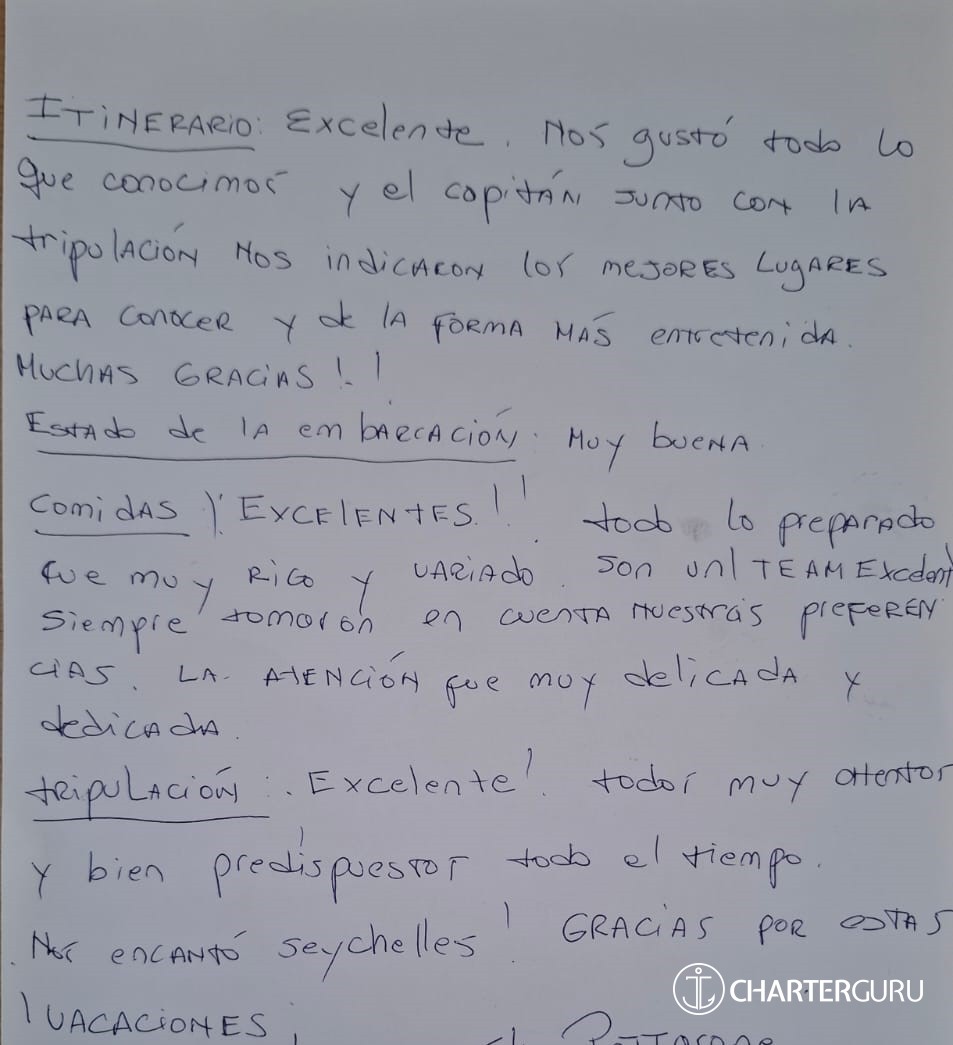 ITINERARIO: Excelente. Nos gustó todo lo
que conocimos y el capitán junto con la
tripulación nos indicaron los mejores lugares
para conocer y de la forma más entretenida.
Muchas gracias!!
Estado de la embarcación: Muy buena.
Comidas: EXCELENTES!! todo lo preparado
fue muy rico y variado. Son un TEAM Excelent
siempre tomaron en cuenta nuestras preferen
cias. La atención fue muy delicada y
dedicada.
tripulación: Excelente! todos muy attentos
y bien predispuestos todo el tiempo.
Nos encantó seychelles! GRACIAS POR ESTAS
VACACIONES
CHARTERGURU